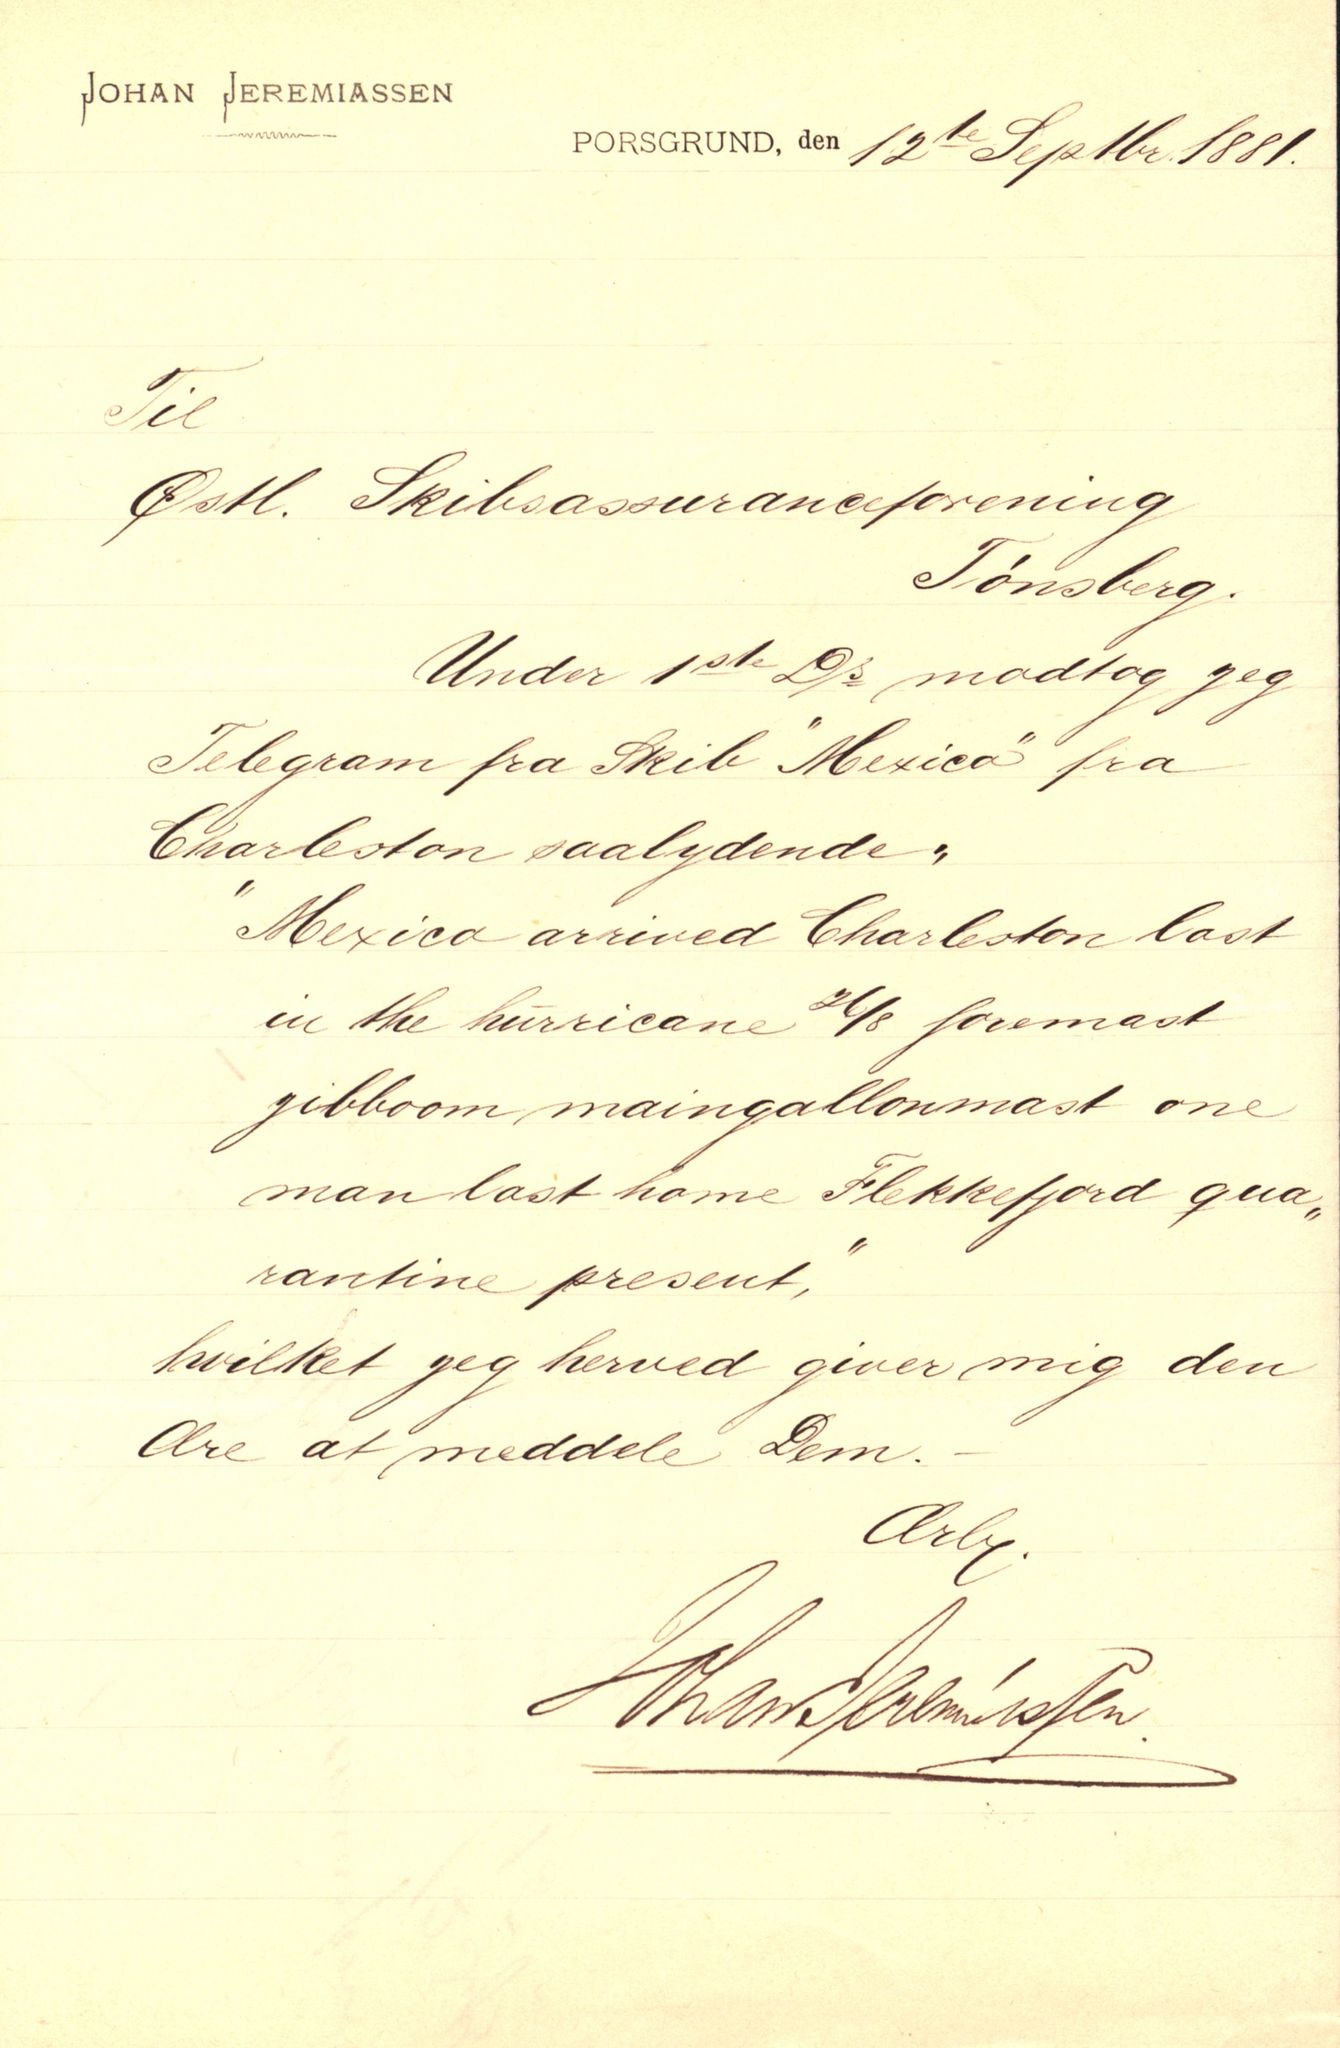 JOHAN JEREMIASSEN
PORSGRUND, den 12te Septbr. 1881.
Til
Østl. Skibsassuranceforening
Tónsberg.
Under 1ste Ds modtog jeg
Telegram fra Skib "Mexico" fra
Charleston saalydende„
"Mexico arrived Charleston lost
in the hurricane 26/8 foremast
jibboom maingallonmast one
man lost home Flekkefjord qua„
rantine present,"
hvilket jeg herved giver mig den
Ære at meddele Dem. -
Ærb.
Johan Jeremiassen.